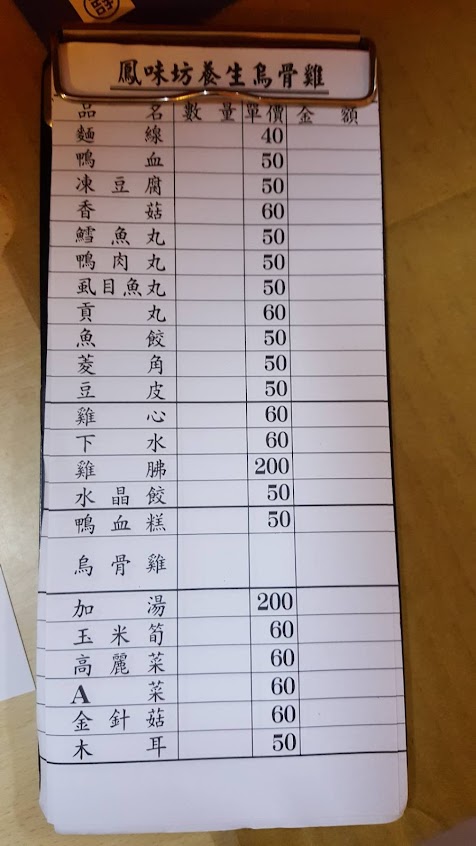 鳳味坊養生烏骨雞
品名 數量 單價 金額
麵線 40
鴨血 50
凍豆腐 50
香菇 60
鱈魚丸 50
鴨肉丸 50
虱目魚丸 50
貢丸 60
魚餃 50
菱角 50
豆皮 50
雞心 60
下水 60
雞胇 200
水晶餃 50
鴨血糕 50
烏骨雞
加湯 200
玉米筍 60
高麗菜 60
A菜 60
金針菇 60
木耳 50